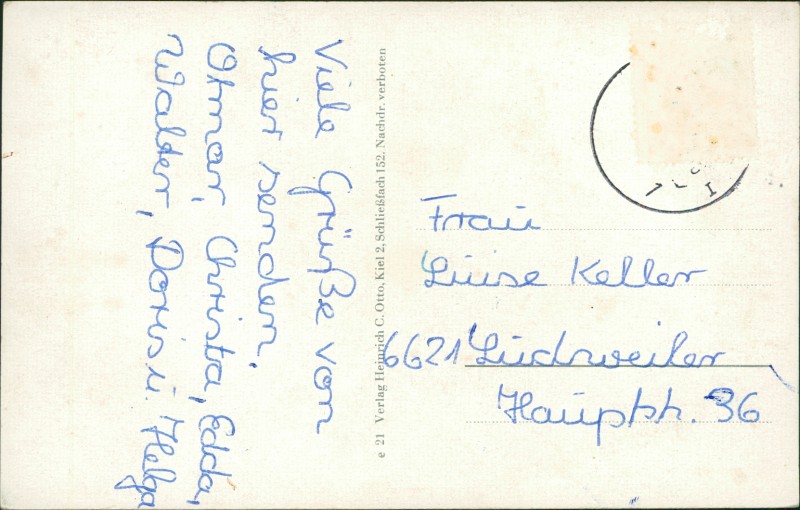 Viele Grüße von
hier senden
Otmar, Christa, Edda,
Walter, Doris u. Helga
e 21 Verlag Heinrich C. Otto, Kiel 2, Schließfach 152. Nachdr. verboten
Frau
Luise Keller
6621 Ludweiler
Hauptstr. 36